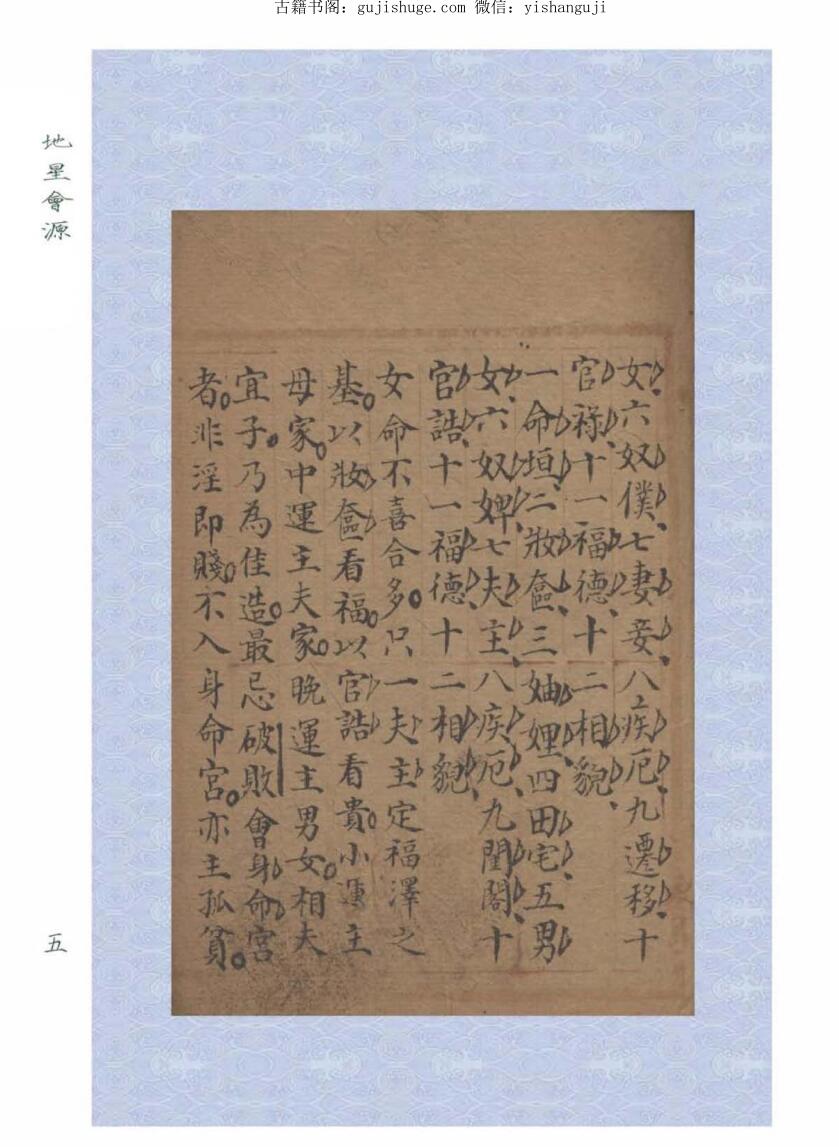 古籍书阁：gujishuge.com 微信：yishanguji
地星會源
女六奴僕、七妻妾、八疾厄、九遷移、十
官祿、十一福德、十二相貌、
一命垣、二妝奩、三妯娌、四田宅、五男
女、六奴婢、七夫主、八疾厄、九閨閣、十
官誥、十一福德、十二相貌、
女命不喜合多。只一夫主定福澤之
基。以妝奩看福。以官誥看貴。小運主
母家。中運主夫家。晚運主男女。相夫
宜子。乃為佳造。最忌破敗會身命宮
者。非淫即賤。不入身命宮。亦主孤貧。
五